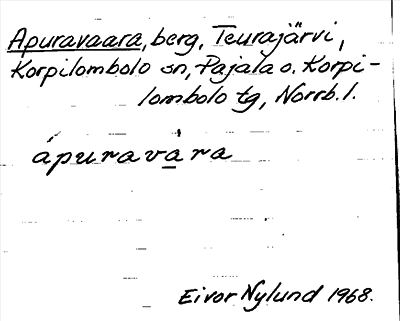 Apuravaara, berg, Teurajärvi,
Korpilombolo sn, Pajala o. Korpi-
lombolo tg, Norrb. l.
ápuravȧ̱ra
Eivor Nylund 1968.